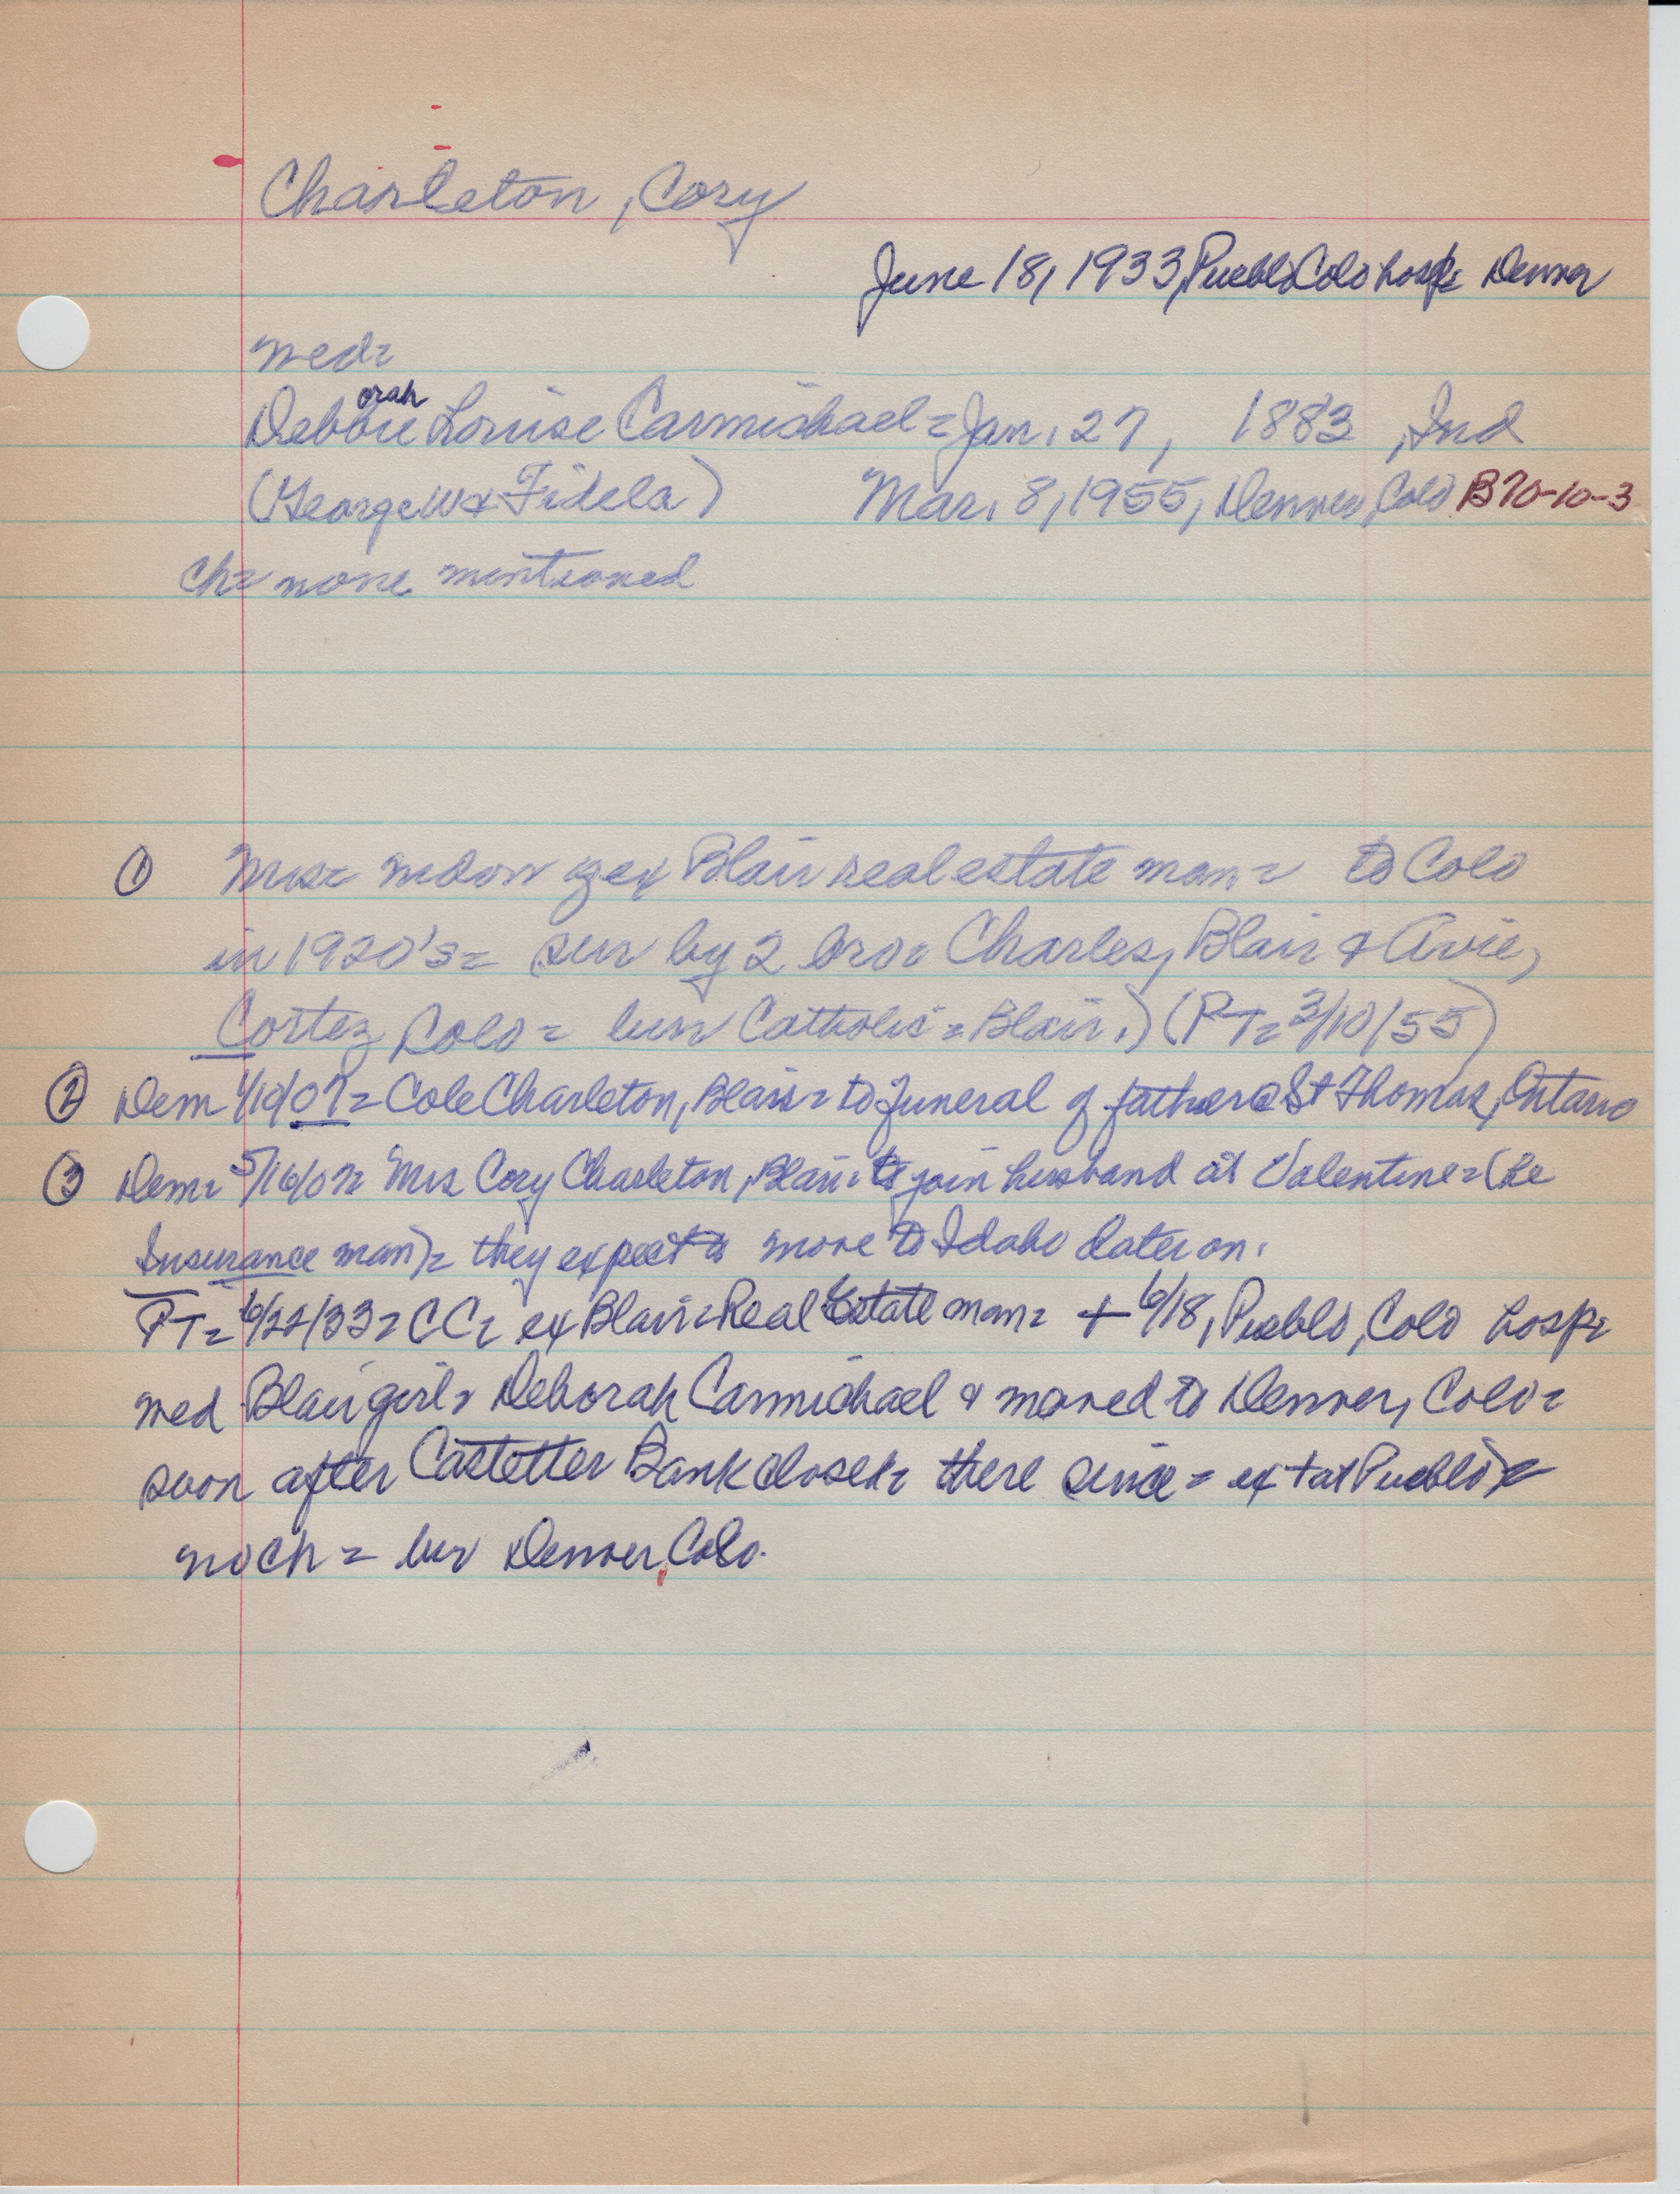 Charleton, Cory
June 18, 1933, Pueblo Colo hosp= Denver
wed=
orah
Debbie Louise Carmichael = Jan. 27, 1883, Ind
(George W & Fidela) Mar. 8, 1955, Denver, Colo B70-10-3
ch= none mentioned
① Mrs= widow of ex Blair real estate man= to Colo
in 1920's= sur by 2 bro= Charles, Blair & Avie,
Cortez Colo= bur Catholic= Blair.) (PT= 3/10/55)
② Dem 1/10/07= Cole Charleton, Blair= to funeral of father @ St Thomas, Ontario
③ Dem= 5/16/07= Mrs Cory Charleton, Blair= to join husband at Valentine= (he
Insurance man)= they expect to move to Idaho later on.
PT= 6/22/33= CC= ex Blair= Real Estate man= + 6/18, Pueblo, Colo hosp=
wed Blair girl= Deborah Carmichael & moved to Denver, Colo=
soon after Castetter Bank closed= there since= + at Pueblo
no ch= bur Denver, Colo.